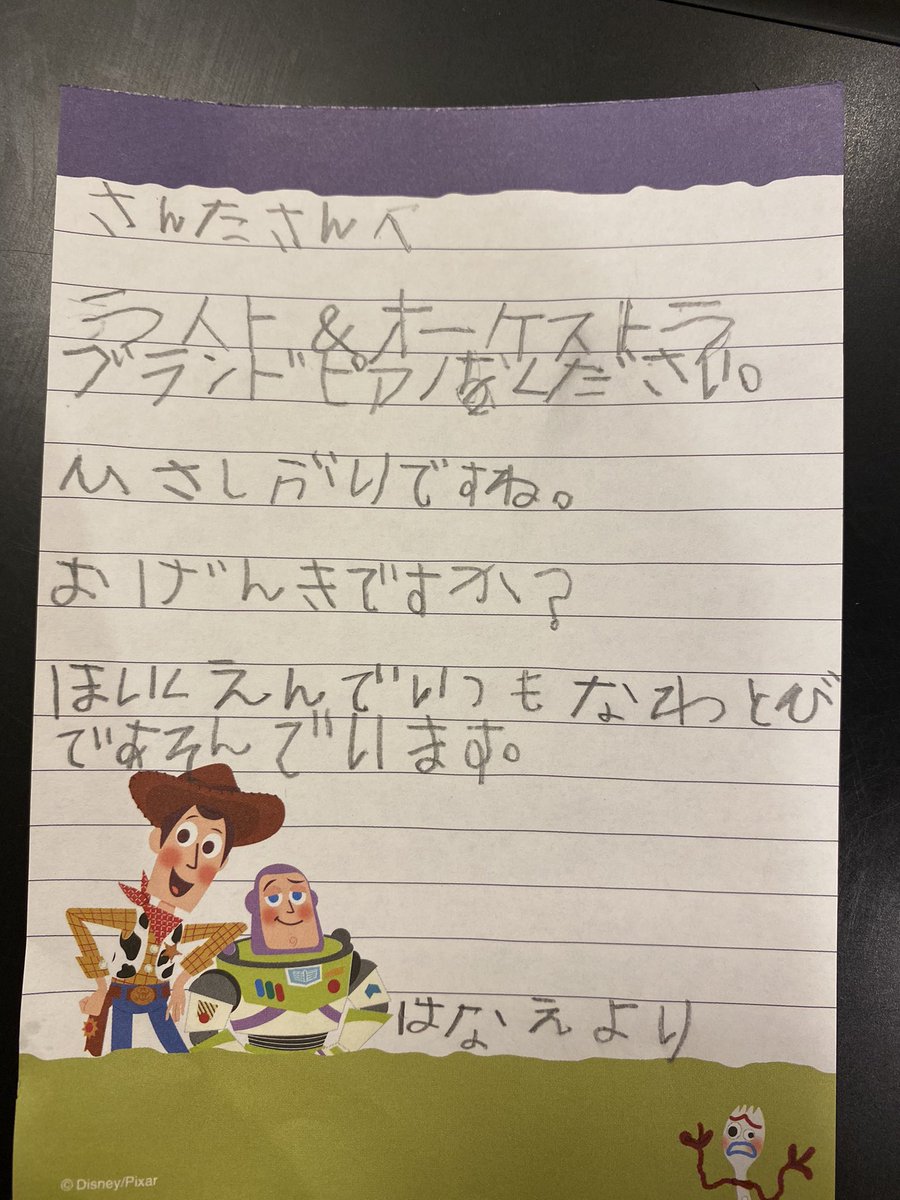 さんたさんへ
ライト&オーケストラ
グランドピアノをください。
ひさしぶりですね。
おげんきですか?
ほいくえんでいつもなわとび
であそんでいます。
はなえより
© Disney/Pixar